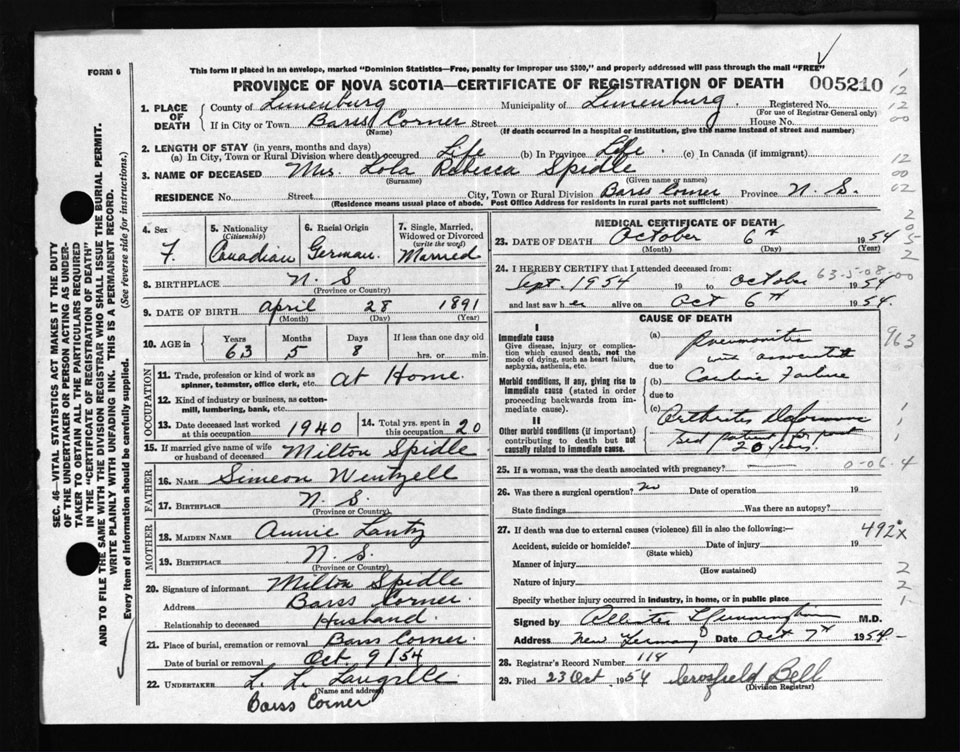 This form if placed in an envelope, marked "Dominion Statistics—Free, penalty for improper use $300," and properly addressed will pass through the mail "FREE"
FORM 6
PROVINCE OF NOVA SCOTIA—CERTIFICATE OF REGISTRATION OF DEATH 005210
1. PLACE OF DEATH County of Lunenburg Municipality of Lunenburg. Registered No.
(For use of Registrar General only)
If in City or Town Barss Corner Street House No.
(Name) (If death occurred in a hospital or institution, give the name instead of street and number)
2. LENGTH OF STAY (in years, months and days)
(a) In City, Town or Rural Division where death occurred Life (b) In Province Life. (c) In Canada (if immigrant)
3. NAME OF DECEASED Mrs. Lola Rebecca Spidle
(Surname) (Given name or names)
RESIDENCE No. Street City, Town or Rural Division Barss Corner Province N. S.
(Residence means usual place of abode. Post Office Address for residents in rural parts not sufficient)
4. Sex F.
5. Nationality (Citizenship) Canadian
6. Racial Origin German.
7. Single, Married, Widowed or Divorced (write the word) Married
8. BIRTHPLACE N. S
(Province or Country)
9. DATE OF BIRTH April 28 1891
(Month) (Day) (Year)
10. AGE in Years 63 Months 5 Days 8 If less than one day old hrs. or min.
OCCUPATION
11. Trade, profession or kind of work as spinner, teamster, office clerk, etc. At Home.
12. Kind of industry or business, as cotton-mill, lumbering, bank, etc.
13. Date deceased last worked at this occupation 1940 14. Total yrs. spent in this occupation 20
15. If married give name of wife or husband of deceased Milton Spidle
FATHER
16. NAME Simeon Wentzell
17. BIRTHPLACE N. S.
(Province or Country)
MOTHER
18. MAIDEN NAME Annie Lantz
19. BIRTHPLACE N. S.
(Province or Country)
20. Signature of informant Milton Spidle
Address Barss Corner.
Relationship to deceased Husband.
21. Place of burial, cremation or removal Barss Corner.
Date of burial or removal Oct. 9/54
22. UNDERTAKER L. L. Langille
(Name and address)
Barss Corner
MEDICAL CERTIFICATE OF DEATH
23. DATE OF DEATH October 6th 1954
(Month) (Day)
24. I HEREBY CERTIFY that I attended deceased from:
63-5-08
Sept. 1954 19 to October 1954
and last saw her alive on Oct 6th 1954.
CAUSE OF DEATH
I
Immediate cause
Give disease, injury or complication which caused death, not the mode of dying, such as heart failure, asphyxia, asthenia, etc.
(a) Pneumonitis
with
due to
Morbid conditions, if any, giving rise to immediate cause (stated in order proceeding backwards from immediate cause).
(b) Cardiac Failure
due to
(c) Arthritis Deformans
II
Other morbid conditions (if important) contributing to death but not causally related to immediate cause.
Bed patient for past
20 yrs.
963
25. If a woman, was the death associated with pregnancy? 0-06.4
26. Was there a surgical operation? no Date of operation 19
State findings Was there an autopsy?
27. If death was due to external causes (violence) fill in also the following:— 492x
Accident, suicide or homicide? Date of injury 19
(State which)
Manner of injury
(How sustained)
Nature of injury
Specify whether injury occurred in industry, in home, or in public place
Signed by M.D.
Address New Germany Date Oct 7th 1954.
28. Registrar's Record Number 114
29. Filed 23 Oct. 1954 Crosfield Bell
(Division Registrar)
SEC. 46—VITAL STATISTICS ACT MAKES IT THE DUTY
OF THE UNDERTAKER OR PERSON ACTING AS UNDERTAKER TO OBTAIN ALL THE PARTICULARS REQUIRED
IN THE "CERTIFICATE OF REGISTRATION OF DEATH"
AND TO FILE THE SAME WITH THE DIVISION REGISTRAR WHO SHALL ISSUE THE BURIAL PERMIT.
WRITE PLAINLY WITH UNFADING INK. THIS IS A PERMANENT RECORD.
Every item of information should be carefully supplied. (See reverse side for instructions.)